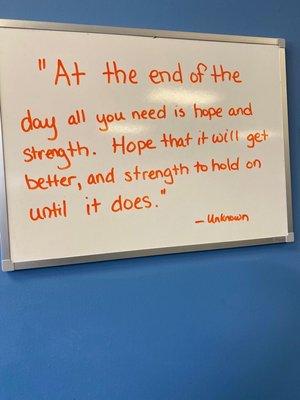 "At the end of the
day all you need is hope and
strength. Hope that it will get
better, and strength to hold on
until it does."
— Unknown